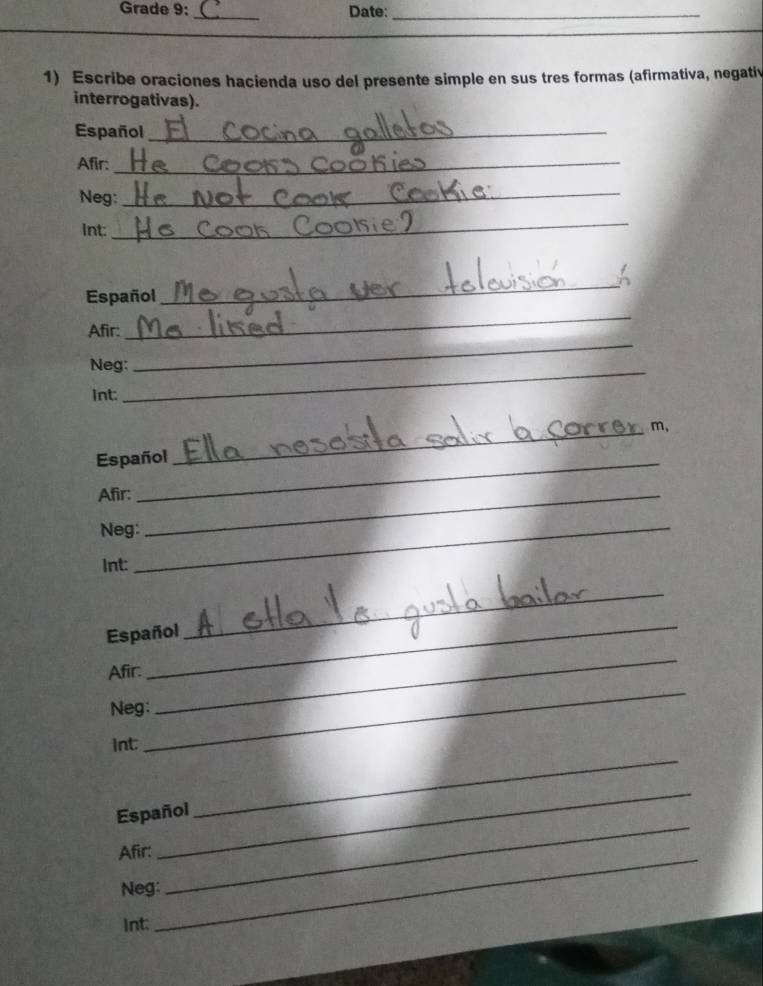 Grade 9: C Date:
1) Escribe oraciones hacienda uso del presente simple en sus tres formas (afirmativa, negativ
interrogativas).
Español El cocina galletas
Afir: He cooks cookies
Neg: He Not cook Cookie.
Int: He cook Cookie?
Español Me gusta ver televisión n
Afir: Me liked
Neg:
Int:
Español Ella nesesita salir a correr m,
Afir:
Neg:
Int:
Español A ella le gusta bailar
Afir:
Neg:
Int:
Español
Afir:
Neg:
Int: